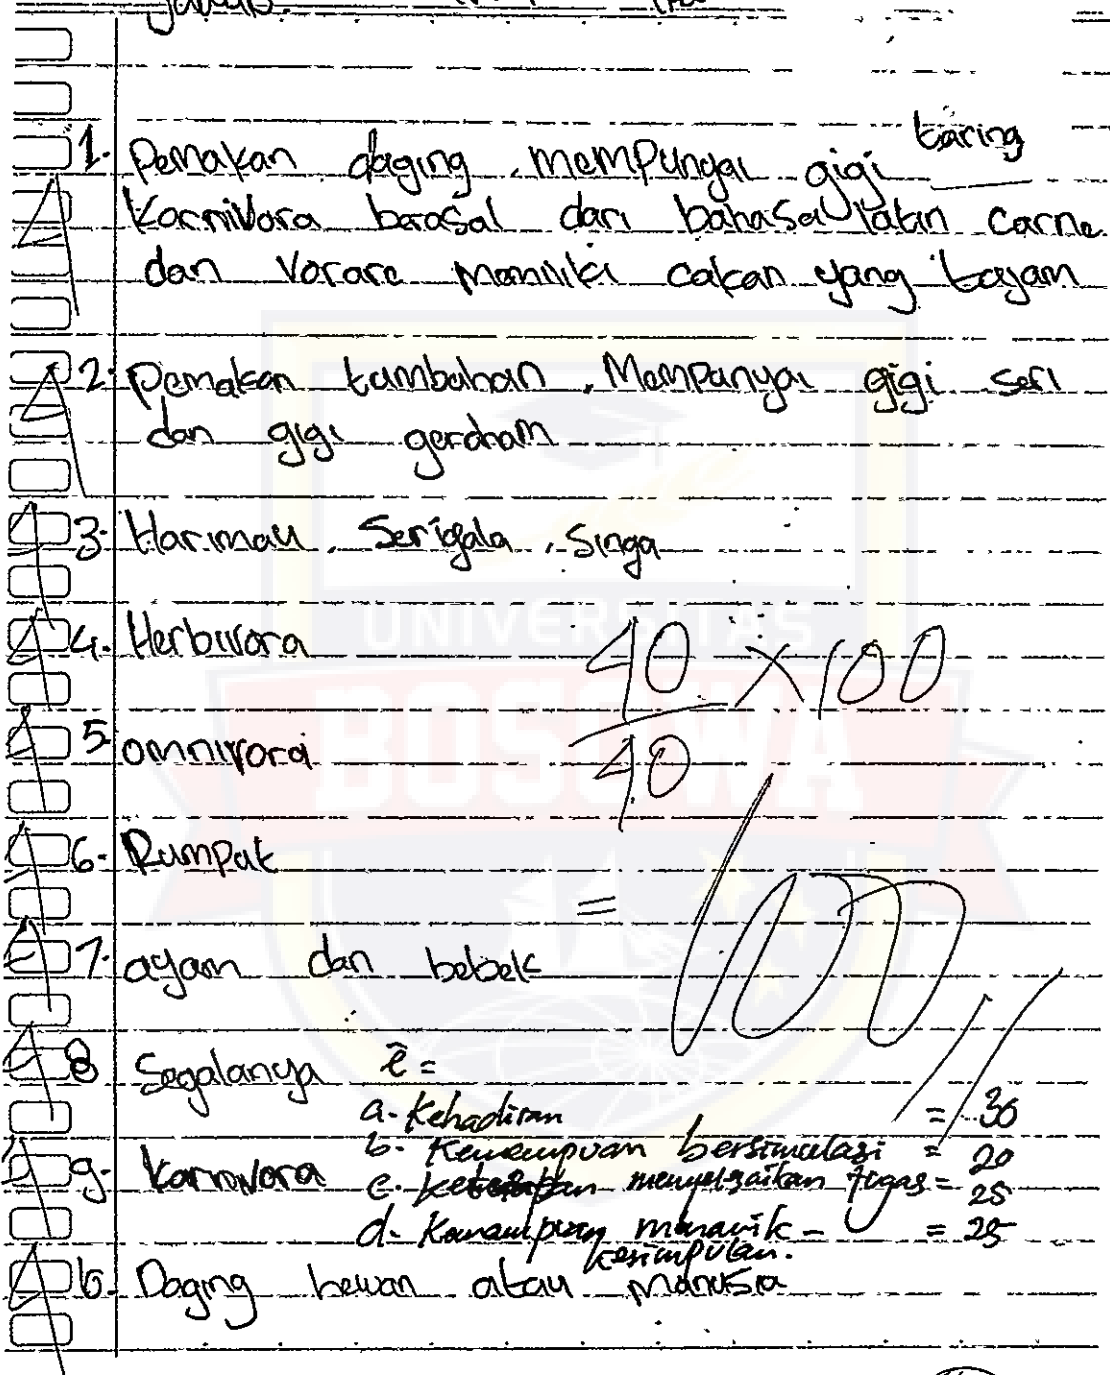 Jawab.
1. Pemakan daging, mempunyai gigi taring
Karnivora berasal dari bahasa latin carne
dan Vorare memiliki cakan yang tajam
2. Pemakan tumbuhan, Mempunyai gigi seri
dan gigi gerdham
3. Harimau, Serigala, Singa
4. Herbivora
5. omnivora
40/40 × 100
6. Rumpat
= 100
7. ayam dan bebek
8. Segalanya
a. Kehadiran = 30
b. Kemampuan bersimulasi = 20
9. Karnivora
c. menyelesaikan tugas = 25
d. Kemampuan menarik kesimpulan. = 25
10. Daging hewan atau manusia
UNIVERSITAS
BOSOWA